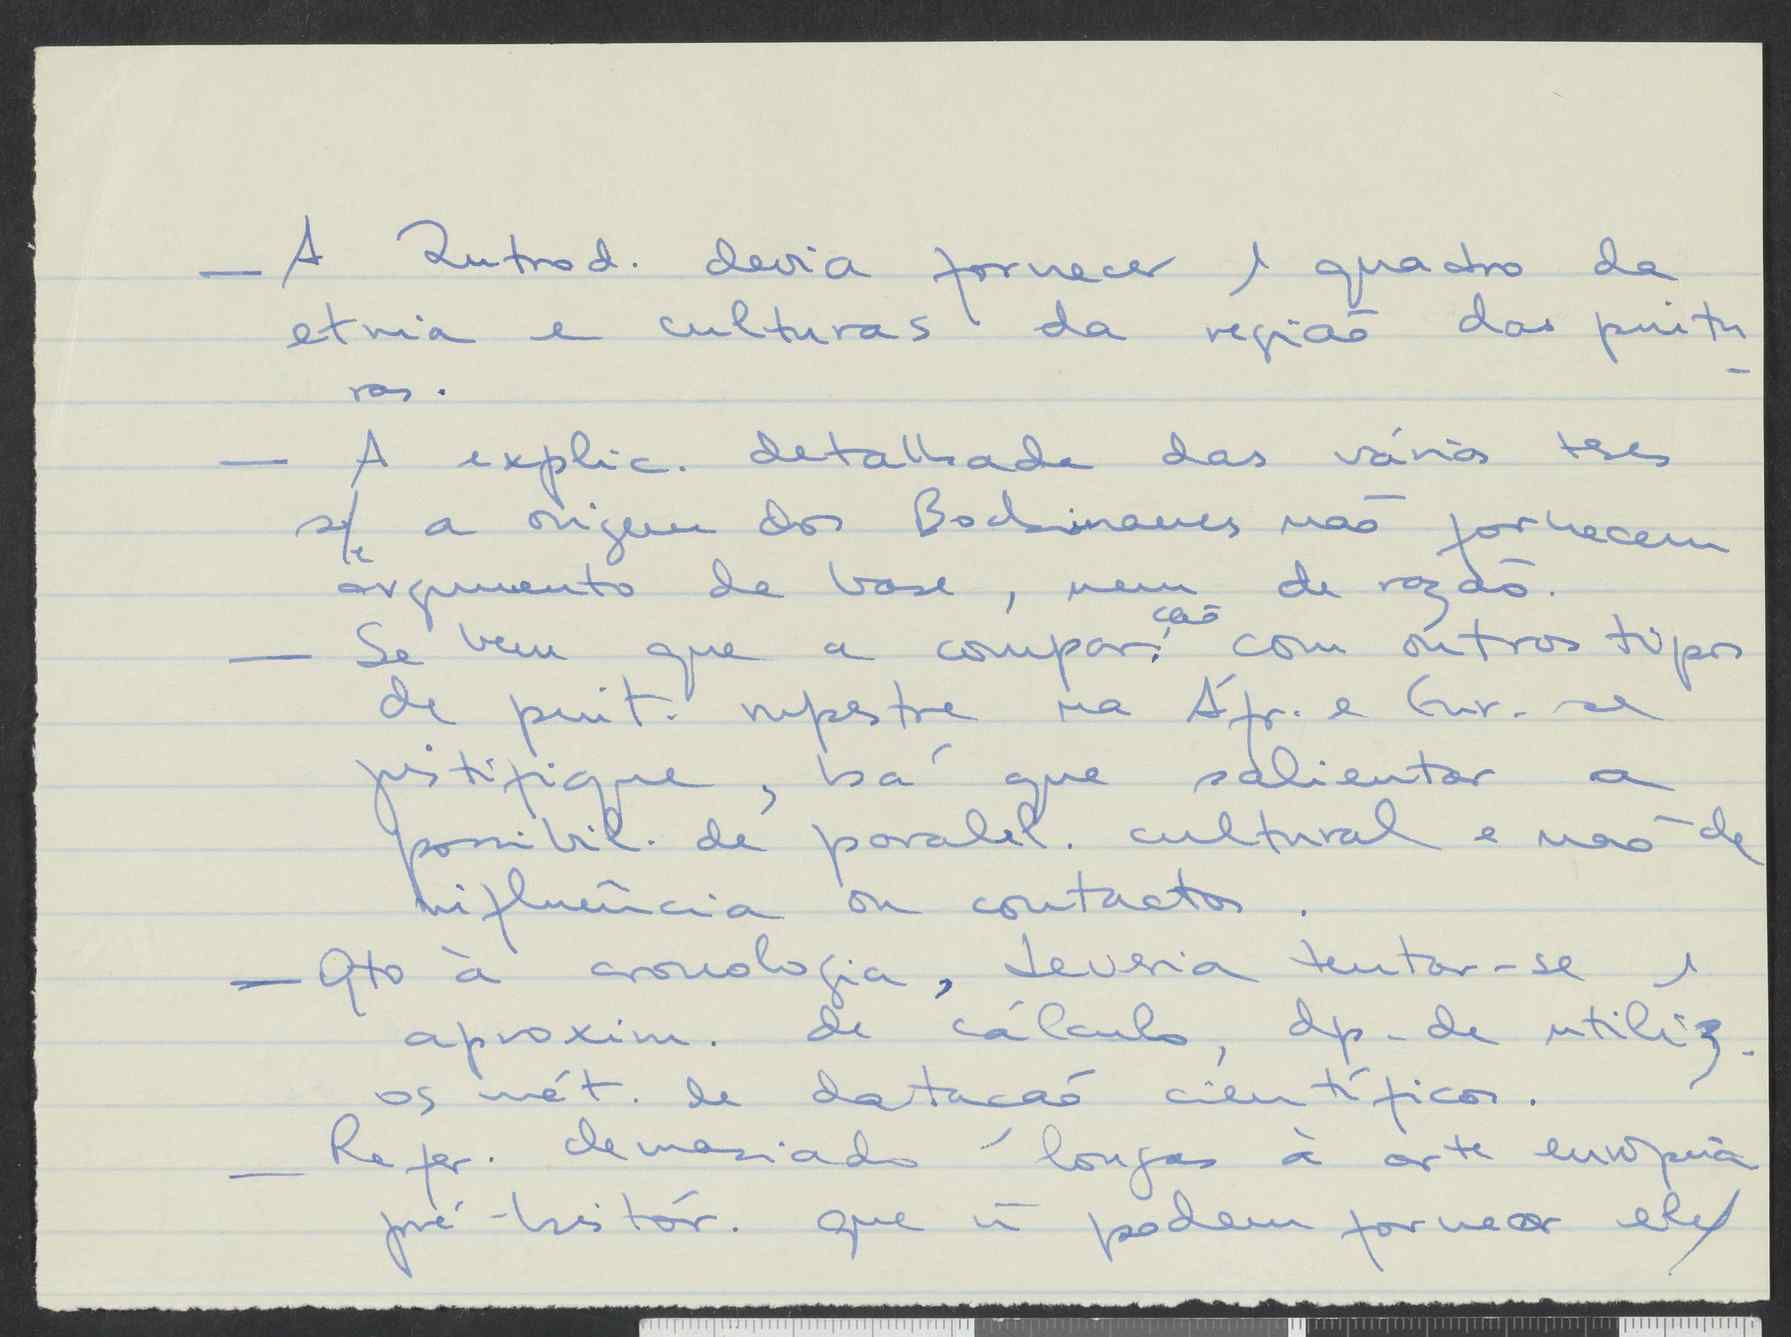 — A Introd. devia fornecer 1 quadro da
etnia e culturas da região das pintu-
ras.
— A explic. detalhada das várias teses
s/ a origem dos Bochimanes não fornecem
argumento de base, nem de razão.
— Se bem que a comparação com outros tipos
de pint. rupestre na Áfr. e Eur. se
justifique, há que salientar a
possibil. de paralel. cultural e não de
influência ou contactos.
— Qto à cronologia, deveria tentar-se 1
aproxim. de cálculo, dp. de utiliz.
os mét. de datação científicos.
— Refer. demasiado longas à arte europeia
pré-histór. que ñ podem fornecer ele/